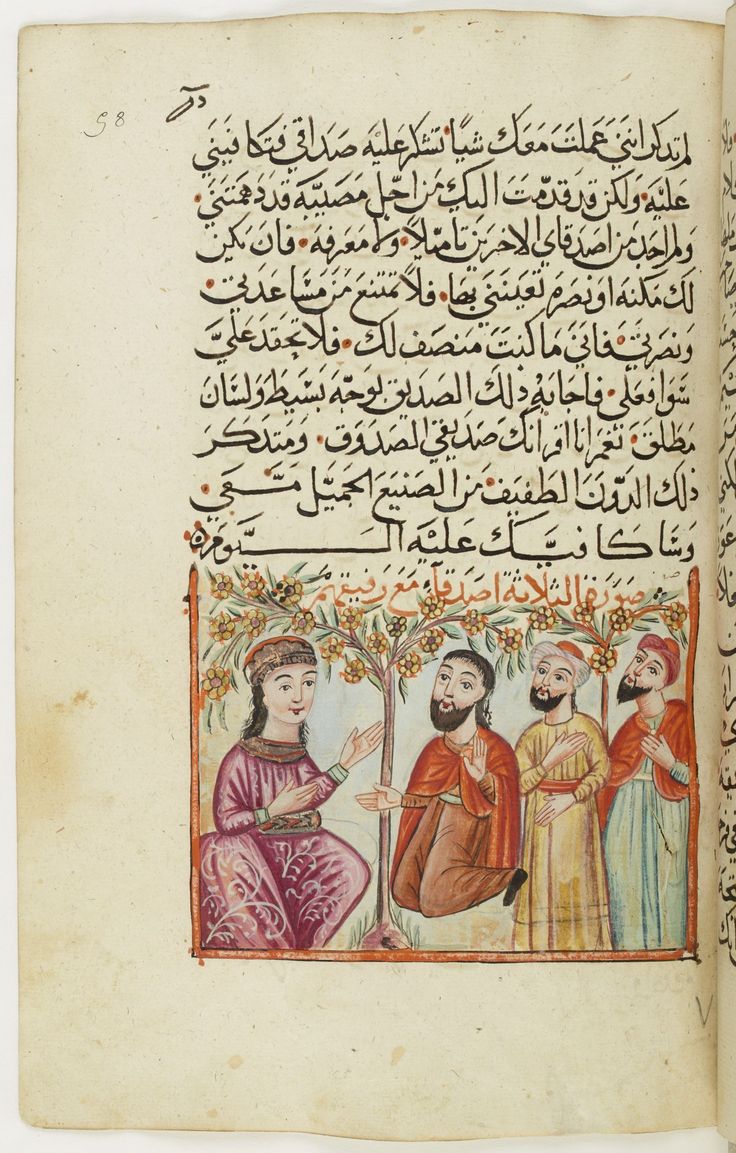 لم تدكر انني عملت معك شياً تشكر عليه صداقي فتكافيني
عليه ولكن قد قدمت اليك من اجل مصيبه قد دهمتني
ولم اجد من اصدقاي الاخرين تاملاً ولا معرفه فان يكن
لك مكنه او نصره تعينني بها فلا تمتنع من مساعدتي
ونصرتي فاني ما كنت منصف لك فلا تحقد علي
سوا فعلي فاجابه دلك الصديق بوجه بسيط ولسان
مطلق نعم انا اقر انك صديقي الصدوق ومتدكر
دلك الدون الطفيف من الصنيع الجميل معي
وساكافيك عليه اليوم
صورة الثلاثة اصدقآء مع رفيقهم
98